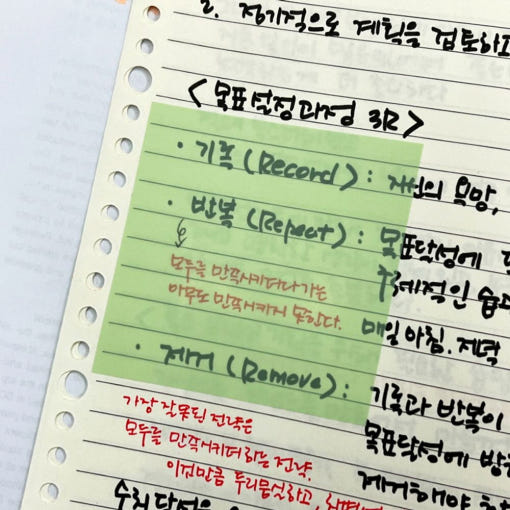 2. 정기적으로 계획을 검토하고
<목표설정과정 3R>
· 기록 (Record) : 자신의 욕망,
· 반복 (Repeat) : 목표달성에
모두를 만족시키려다가는 구체적인 습
아무도 만족시키지 못한다. 매일 아침. 저녁
· 제거 (Remove) : 기록과 반복이
가장 잘못된 전략은 목표달성에 방
모두를 만족시키려 하는 전략. 제거해야
이것만큼 두리뭉실하고,